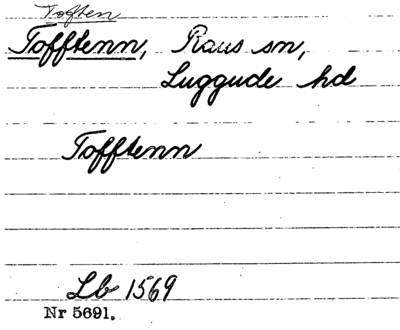 Toften
Tofftenn, Raus sn,
Luggude hd
Tofftenn
Lb 1569
Nr 5691.